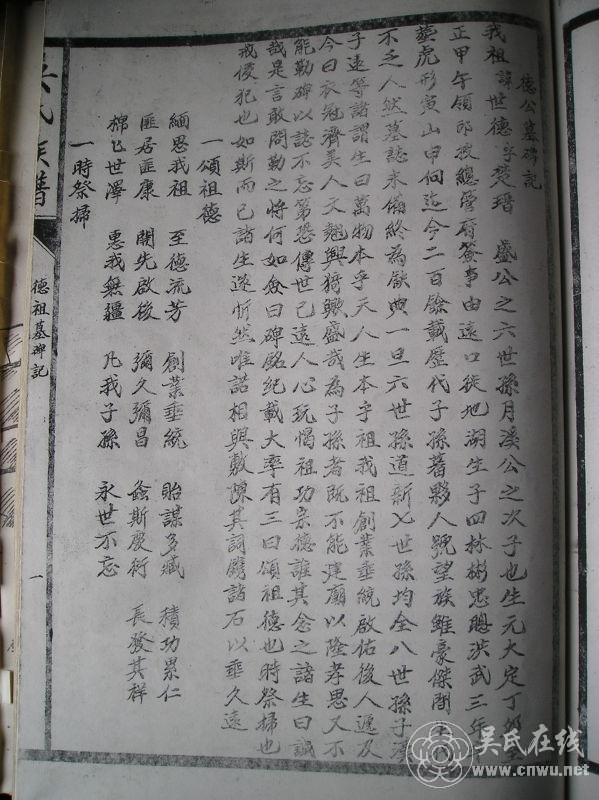 德公墓碑記
我祖諱世德字楚瑨 盛公之六世孫月溪公之次子也生元大定丁卯至
正甲午領邱投總管府簽事由遠口徙地湖生子四林彬忠聰洪武三年
葬虎形寅山申向迄今二百餘載歷代子孫蕃夥人號望族雖豪傑間生代
不乏人然墓誌未俻終為缺典一旦六世孫道新七世孫均全八世孫子漢
子遠等諸謂生曰萬物本乎天人生本乎祖我祖創業垂統啟佑後人遞及
今日衣冠濟美人文翹興猗歟盛哉為子孫者既不能建廟以隆孝思又不
能勒碑以誌不忘第恐傳世已遠人心玩愒祖功宗德誰其念之諸生曰誠
哉是言敢問勒之將何如僉曰碑銘紀載大率有三曰頌祖德也時祭掃也
戒侵犯也如斯而已諸生遂忻然唯諾相與敷陳其詞鐫諸石以垂久遠
一頌祖德
緬思我祖 至德流芳 創業垂統 貽謀多臧 積功累仁
匪居匪康 開先啟後 彌久彌昌 螽斯慶衍 長發其祥
綿乜世澤 惠我無疆 凡我子孫 永世不忘
一時祭掃
吳氏族譜
德祖墓碑記
一
吴氏在线
www.cnwu.net